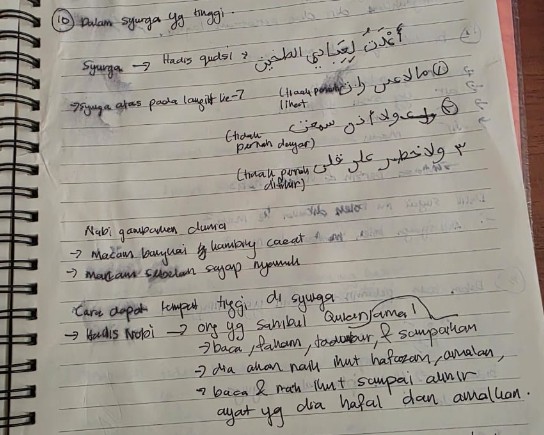 ⑩ Dalam syurga yg tinggi.
Syurga → Hadis qudsi: أعددت لعبادي الصالحين
→ Syurga atas pada langit ke-7 (tidak pernah lihat) ① مالا عين رأت
(tidak pernah dengar) ② ولا أذن سمعت
(tidak pernah difikir) ٣ ولا خطر على قلب
Nabi gambarkan dunia
→ macam bangkai kambing cacat
→ macam sebelah sayap nyamuk
Cara dapat tempat tinggi di syurga
→ Hadis Nabi → org yg sahibul Quran/amal
→ baca, faham, tadabbur, & sampaikan
→ dia akan naik ikut hafazan, amalan,
→ baca & naik ikut sampai akhir
ayat yg dia hafal dan amalkan.